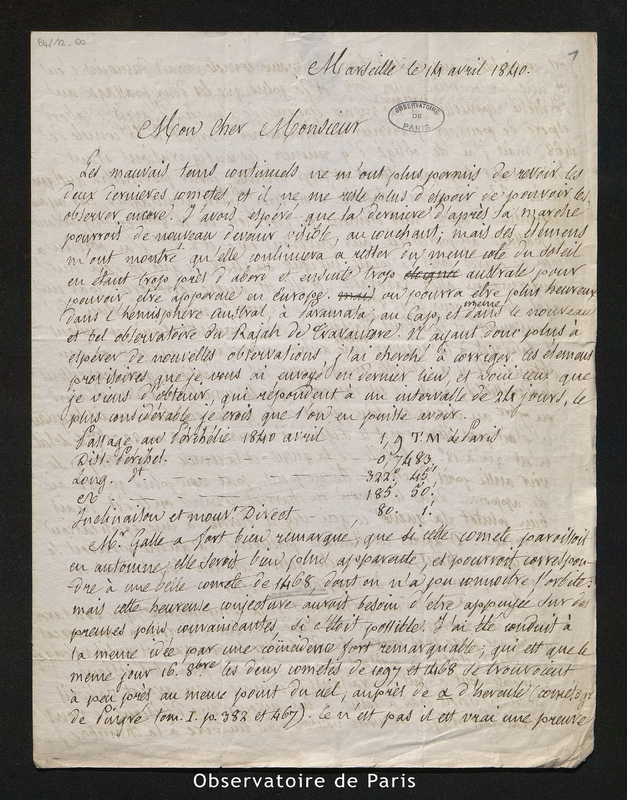 B4/12_60
1
Marseille le 14 avril 1840.
OBSERVATOIRE
DE
PARIS
Mon cher Monsieur
Les mauvais tems continuels ne m'ont plus permis de revoir les
deux dernieres cometes, et il ne me reste plus d'espoir de pouvoir les
observer encore. J'avois espéré que la derniere d'après sa marche
pourroit de nouveau devenir visible, au couchant; mais ses élémens
m'ont montré qu'elle continuera a rester du meme coté du soleil
en étant trop près d'abord et ensuite trop eloignée australe pour
pouvoir etre apperçue en Europe. mais on pourra etre plus heureux
dans l'hemisphère austral, à Paramata, au Cap, et meme dans le nouveau
et bel observatoire du Rajah de Travancore. N'ayant donc plus à
espérer de nouvelles observations, j'ai cherché à corriger les élémens
provisoires que je vous ai envoyé en dernier lieu, et voici ceux que
je viens d'obtenir, qui répondent à un intervalle de 24 jours, le
plus considérable je crois que l'on en puisse avoir.
Passage au Périhélie 1840 avril 1,9 T.M. de Paris
Dist. Périhel. 0,7483
Long. dt 322° 45'
185. 50.
Inclinaison et mouvt Direct 80. 1.
Mr Galle a fort bien remarqué, que si cette comete paroissoit
en automne, elle seroit bien plus apparente, et pourroit correspon-
dre à une belle comete de 1468, dont on n'a pu connoitre l'orbite:
mais cette heureuse conjecture auroit besoin d'etre appuyée sur des
preuves plus convaincantes, si c'étoit possible. J'ai été conduit à
la meme idée par une coïncidence fort remarquable; qui est que le
meme jour 16. 8bre les deux cometes de 1097 et 1468 se trouvoient
à peu près au meme point du ciel, auprès de α d'hercule (cometogr.
de Pingré tom. I. p. 382 et 467). Ce n'est pas il est vrai une preuve
Observatoire de Paris